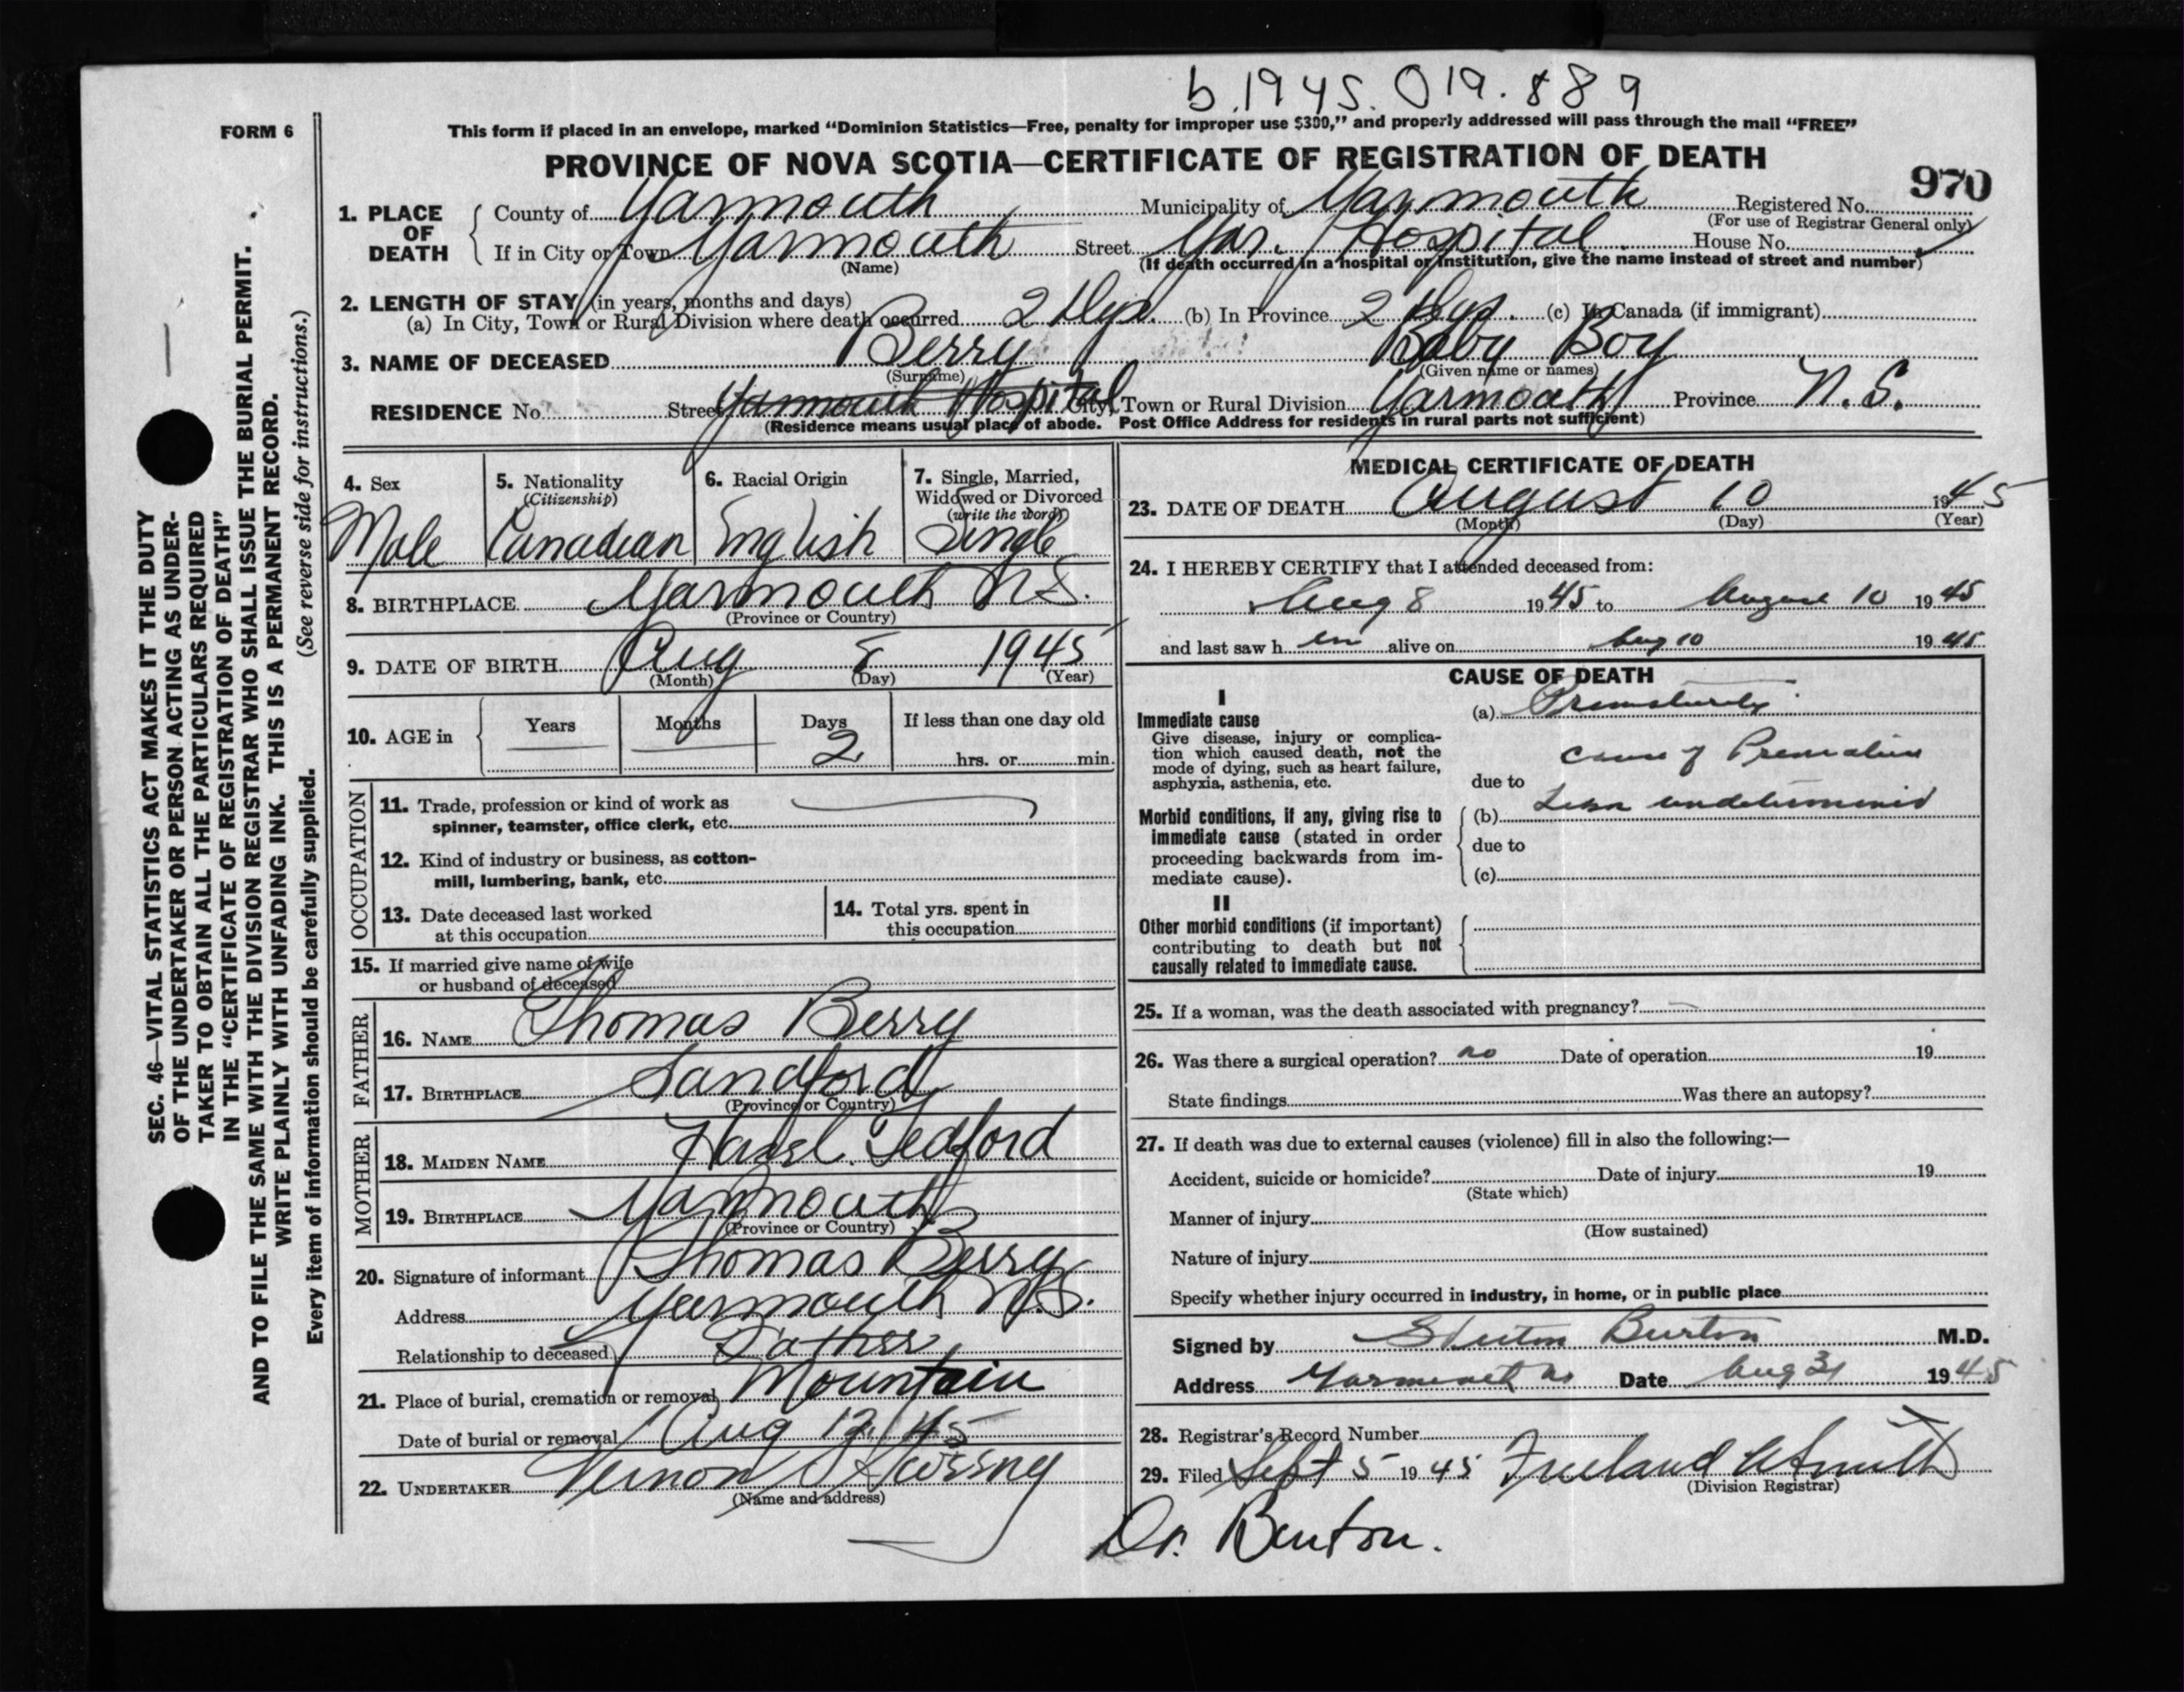 b.1945.019.889
FORM 6
This form if placed in an envelope, marked “Dominion Statistics—Free, penalty for improper use $300,” and properly addressed will pass through the mail “FREE”
PROVINCE OF NOVA SCOTIA—CERTIFICATE OF REGISTRATION OF DEATH
970
1. PLACE OF DEATH
County of Yarmouth Municipality of Yarmouth Registered No.
(For use of Registrar General only)
If in City or Town Yarmouth Street Yar. Hospital House No.
(Name) (If death occurred in a hospital or institution, give the name instead of street and number)
2. LENGTH OF STAY (in years, months and days)
(a) In City, Town or Rural Division where death occurred 2 Dys. (b) In Province 2 Dys. (c) In Canada (if immigrant)
3. NAME OF DECEASED Berry Baby Boy
(Surname) (Given name or names)
RESIDENCE No. Street Yarmouth Hospital City, Town or Rural Division Yarmouth Province N.S.
(Residence means usual place of abode. Post Office Address for residents in rural parts not sufficient)
4. Sex
Male
5. Nationality
(Citizenship)
Canadian
6. Racial Origin
English
7. Single, Married,
Widowed or Divorced
(write the word)
Single
8. BIRTHPLACE Yarmouth N.S.
(Province or Country)
9. DATE OF BIRTH Aug 8 1945
(Month) (Day) (Year)
10. AGE in Years Months Days If less than one day old
2 hrs. or min.
OCCUPATION
11. Trade, profession or kind of work as
spinner, teamster, office clerk, etc.
12. Kind of industry or business, as cotton-
mill, lumbering, bank, etc.
13. Date deceased last worked
at this occupation
14. Total yrs. spent in
this occupation
15. If married give name of wife
or husband of deceased
FATHER
16. NAME Thomas Berry
17. BIRTHPLACE Sandford
(Province or Country)
MOTHER
18. MAIDEN NAME Hazel Tedford
19. BIRTHPLACE Yarmouth
(Province or Country)
20. Signature of informant Thomas Berry
Address Yarmouth N.S.
Relationship to deceased Father
21. Place of burial, cremation or removal Mountain
Date of burial or removal Aug 12/45
22. UNDERTAKER Vernon
(Name and address)
MEDICAL CERTIFICATE OF DEATH
23. DATE OF DEATH August 10 1945
(Month) (Day) (Year)
24. I HEREBY CERTIFY that I attended deceased from:
Aug 8 1945 to August 10 1945
and last saw h im alive on Aug 10 1945
CAUSE OF DEATH
I
Immediate cause
Give disease, injury or complica-
tion which caused death, not the
mode of dying, such as heart failure,
asphyxia, asthenia, etc.
(a) Prematurity
due to cause of Premature
Morbid conditions, if any, giving rise to
immediate cause (stated in order
proceeding backwards from im-
mediate cause).
(b) undetermined
due to
(c)
II
Other morbid conditions (if important)
contributing to death but not
causally related to immediate cause.
25. If a woman, was the death associated with pregnancy?
26. Was there a surgical operation? no Date of operation 19
State findings Was there an autopsy?
27. If death was due to external causes (violence) fill in also the following:—
Accident, suicide or homicide? Date of injury 19
(State which)
Manner of injury
(How sustained)
Nature of injury
Specify whether injury occurred in industry, in home, or in public place
Signed by Burton M.D.
Address Yarmouth NS Date Aug 31 1945
28. Registrar's Record Number
29. Filed Sept 5 1945 Freeland A Smith
(Division Registrar)
Dr. Burton.
SEC. 46—VITAL STATISTICS ACT MAKES IT THE DUTY
OF THE UNDERTAKER OR PERSON ACTING AS UNDER-
TAKER TO OBTAIN ALL THE PARTICULARS REQUIRED
IN THE “CERTIFICATE OF REGISTRATION OF DEATH”
AND TO FILE THE SAME WITH THE DIVISION REGISTRAR WHO SHALL ISSUE THE BURIAL PERMIT.
WRITE PLAINLY WITH UNFADING INK. THIS IS A PERMANENT RECORD.
Every item of information should be carefully supplied. (See reverse side for instructions.)